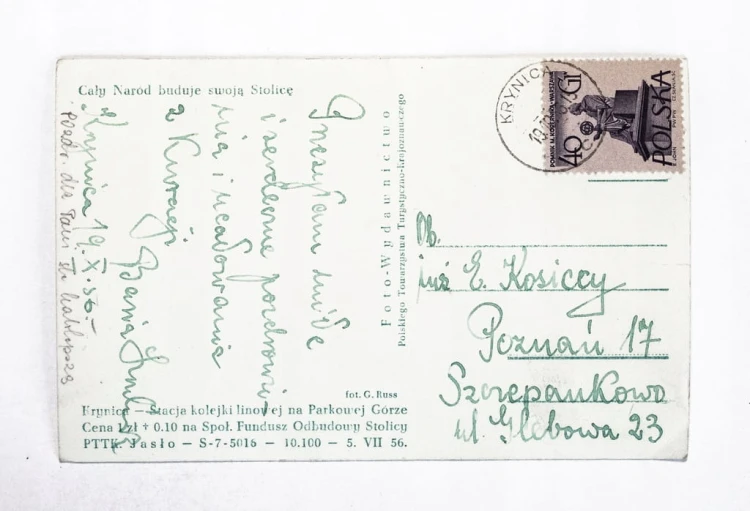 Cały Naród buduje swoją Stolicę
Przesyłam dużo
i serdeczne pozdrowie-
nia i ucałowania
z Kuracji
Basia
Krynica 19.X.56.
Pozdr. dla Pani
Foto-Wydawnictwo
Polskiego Towarzystwa Turystyczno-Krajoznawczego
fot. G. Russ
Krynica — Stacja kolejki linowej na Parkowej Górze
Cena 1 zł + 0.10 na Społ. Fundusz Odbudowy Stolicy
PTTK. Jasło — S-7-5016 — 10.100 — 5. VII 56.
KRYNICA
40 Gr
POLSKA
POMNIK M. KOPERNIKA-WARSZAWA
Ob.
inż E. Kosiccy
Poznań 17
Szczepankowo
ul. Glebowa 23